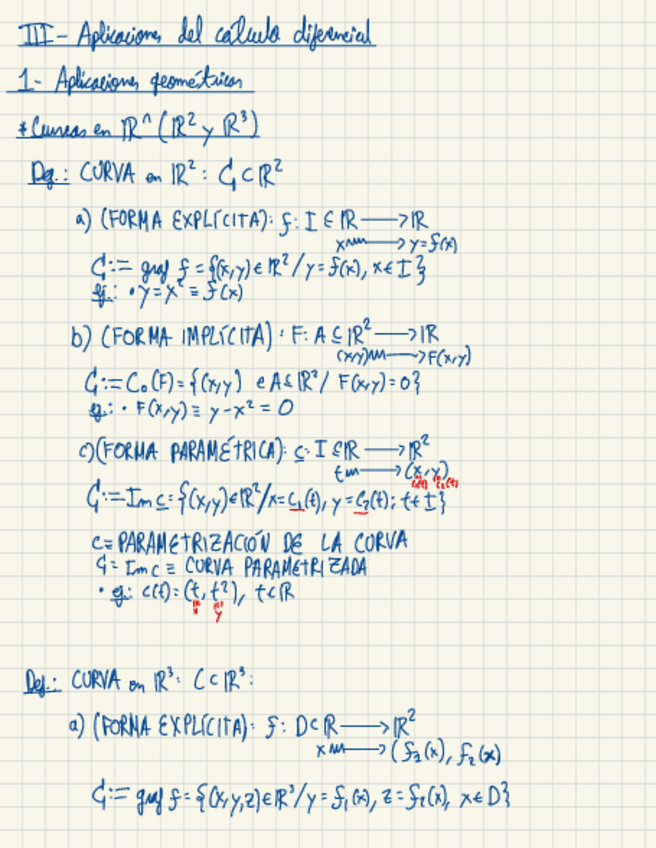 III- Aplicaciones del cálculo diferencial
1- Aplicaciones geométricas
* Curvas en ℝⁿ (ℝ² y ℝ³)
Def.: CURVA en ℝ²: C ⊂ ℝ²
a) (FORMA EXPLÍCITA): f: I ∈ ℝ ⟶ ℝ
x ⟿ y = f(x)
C := graf f = {(x,y) ∈ ℝ² / y = f(x), x ∈ I}
eg.: • y = x² ≡ f(x)
b) (FORMA IMPLÍCITA): F: A ⊆ ℝ² ⟶ ℝ
(x,y) ⟿ F(x,y)
C := C₀(F) = {(x,y) ∈ A ⊆ ℝ² / F(x,y) = 0}
eg.: • F(x,y) ≡ y - x² = 0
c) (FORMA PARAMÉTRICA): c: I ⊆ ℝ ⟶ ℝ²
t ⟿ (x, y)
c₁(t) c₂(t)
C := Im c = {(x,y) ∈ ℝ² / x = c₁(t), y = c₂(t); t ∈ I}
c ≡ PARAMETRIZACIÓN DE LA CURVA
C = Im c ≡ CURVA PARAMETRIZADA
• eg.: c(t) = (t, t²), t ∈ ℝ
x y
Def.: CURVA en ℝ³: C ⊂ ℝ³:
a) (FORMA EXPLÍCITA): f: D ⊂ ℝ ⟶ ℝ²
x ⟿ (f₁(x), f₂(x)
C := graf f = {(x,y,z) ∈ ℝ³ / y = f₁(x), z = f₂(x), x ∈ D}